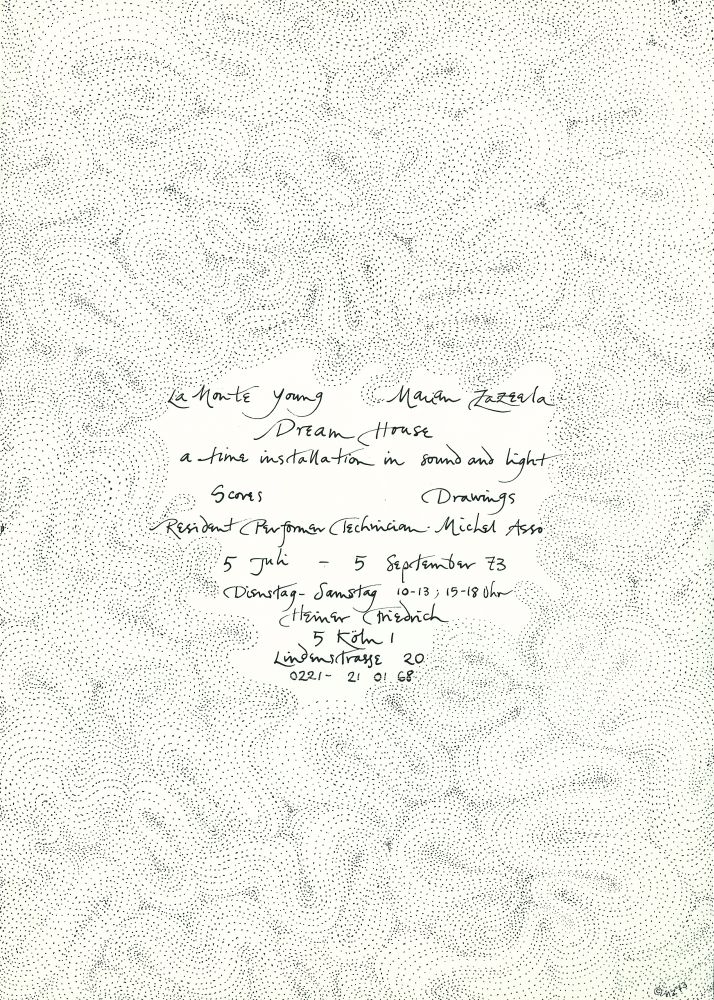 La Monte Young Marian Zazeela
Dream House
a time installation in sound and light
Scores Drawings
Resident Performer Technician · Michel Asso
5 Juli – 5 September 73
Dienstag - Samstag 10-13 ; 15-18 Uhr
Heiner Friedrich
5 Köln 1
Lindenstrasse 20
0221- 21 01 68
©MZ 73